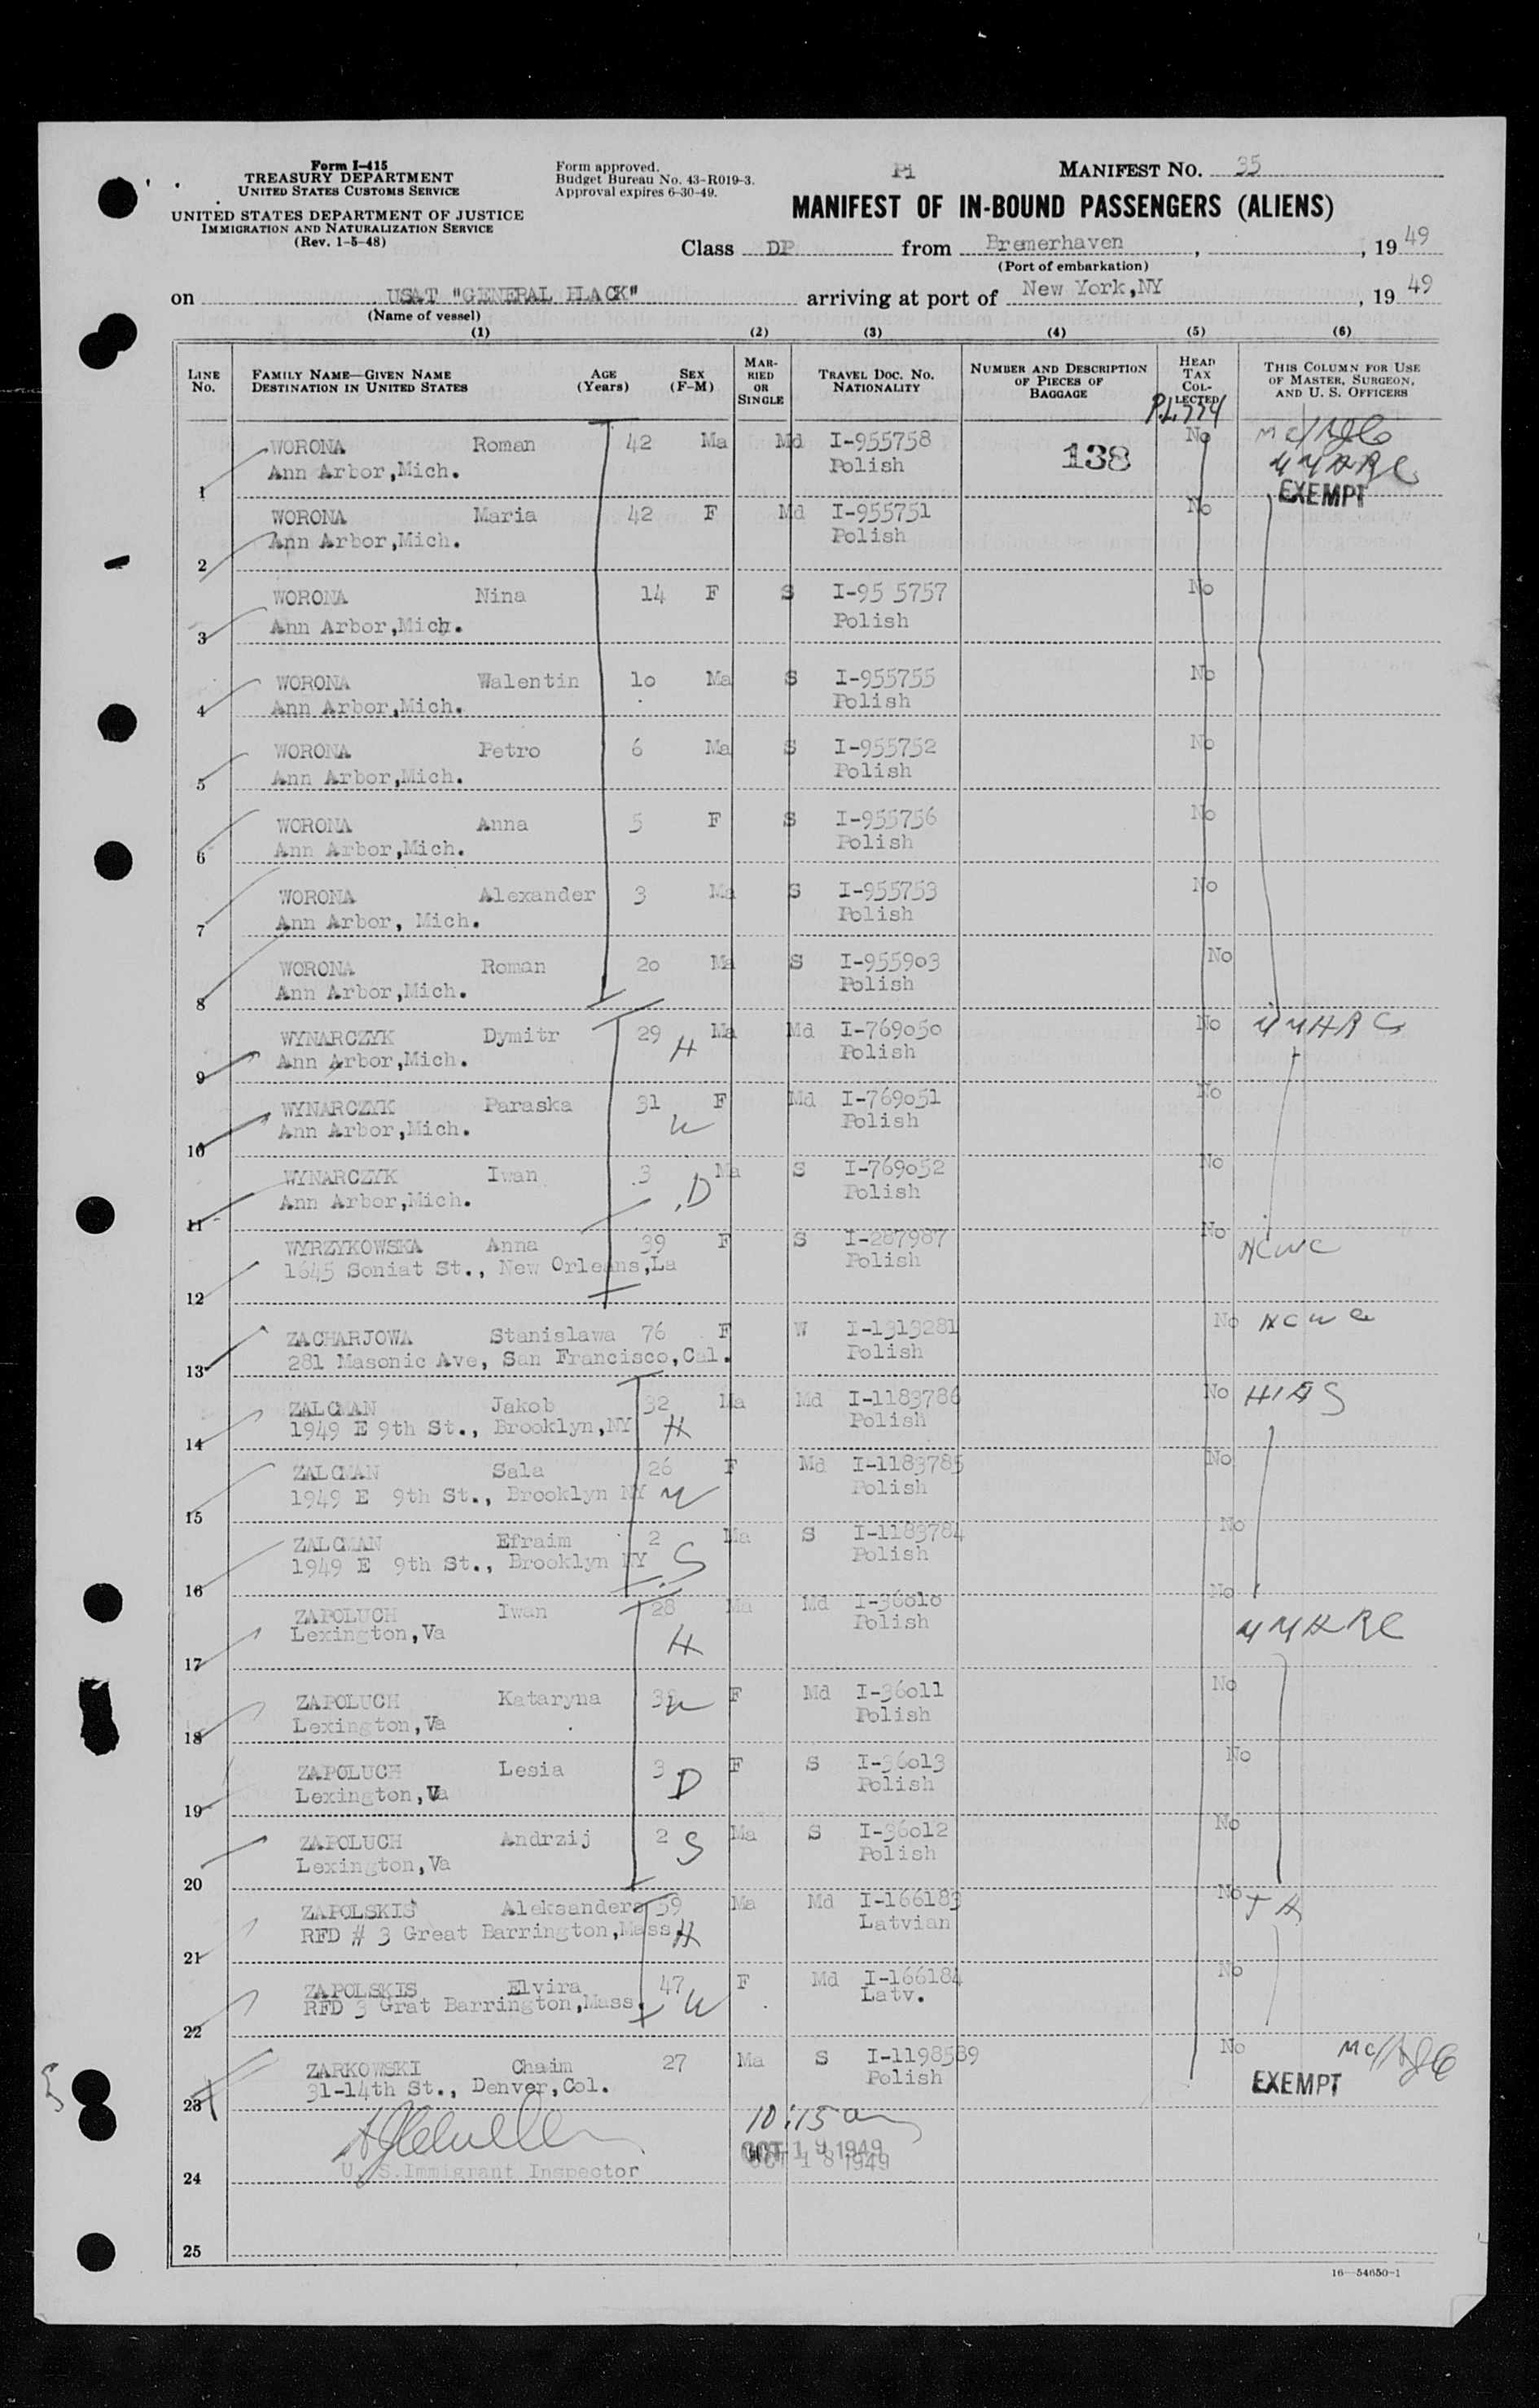 Form I-415
TREASURY DEPARTMENT
UNITED STATES CUSTOMS SERVICE
UNITED STATES DEPARTMENT OF JUSTICE
IMMIGRATION AND NATURALIZATION SERVICE
(Rev. 1-5-48)
Form approved.
Budget Bureau No. 43-R019-3.
Approval expires 6-30-49.
Pi
MANIFEST NO. 35
MANIFEST OF IN-BOUND PASSENGERS (ALIENS)
Class DP from Bremerhaven, , 19 49
(Port of embarkation)
on USAT "GENERAL BLACK" arriving at port of New York,NY , 19 49
(Name of vessel)
(1) (2) (3) (4) (5) (6)
LINE No. FAMILY NAME—GIVEN NAME DESTINATION IN UNITED STATES AGE (Years) SEX (F-M) MARRIED OR SINGLE TRAVEL DOC. NO. NATIONALITY NUMBER AND DESCRIPTION OF PIECES OF BAGGAGE HEAD TAX COLLECTED THIS COLUMN FOR USE OF MASTER, SURGEON, AND U. S. OFFICERS
P.L. 774
WORONA Roman 42 Ma Md I-955758 138 No
1 Ann Arbor,Mich. Polish
EXEMPT
WORONA Maria 42 F Md I-955751 No
2 Ann Arbor,Mich. Polish
WORONA Nina 14 F S I-95 5757 No
3 Ann Arbor,Mich. Polish
WORONA Walentin 10 Ma S I-955755 No
4 Ann Arbor,Mich. Polish
WORONA Petro 6 Ma S I-955752 No
5 Ann Arbor,Mich. Polish
WORONA Anna 5 F S I-955756 No
6 Ann Arbor,Mich. Polish
WORONA Alexander 3 Ma S I-955753 No
7 Ann Arbor, Mich. Polish
WORONA Roman 20 Ma S I-955903 No
8 Ann Arbor,Mich. Polish
WYNARCZYK Dymitr 29 H Ma Md I-769050 No
9 Ann Arbor,Mich. Polish
WYNARCZYK Paraska 31 W F Md I-769051 No
10 Ann Arbor,Mich. Polish
WYNARCZYK Iwan 3 D Ma S I-769052 No
11 Ann Arbor,Mich. Polish
WYRZYKOWSKA Anna 39 F S I-287987 No NCWC
12 1645 Soniat St., New Orleans,La Polish
ZACHARJOWA Stanislawa 76 F W I-1313281 No NCWC
13 281 Masonic Ave, San Francisco,Cal. Polish
ZALCMAN Jakob 32 H Ma Md I-1183786 No HIAS
14 1949 E 9th St., Brooklyn,NY Polish
ZALCMAN Sala 26 W F Md I-1183785 No
15 1949 E 9th St., Brooklyn NY Polish
ZALCMAN Efraim 2 S Ma S I-1183784 No
16 1949 E 9th St., Brooklyn NY Polish
ZAPOLUCH Iwan 28 H Ma Md I-36010 No
17 Lexington,Va Polish
ZAPOLUCH Kataryna W F Md I-36011 No
18 Lexington,Va Polish
ZAPOLUCH Lesia 3 D F S I-36013 No
19 Lexington,Va Polish
ZAPOLUCH Andrzij 2 S Ma S I-36012 No
20 Lexington,Va Polish
ZAPOLSKIS Aleksanders 59 H Ma Md I-166183 No
21 RFD # 3 Great Barrington,Mass. Latvian
ZAPOLSKIS Elvira 47 W F Md I-166184 No
22 RFD 3 Grat Barrington,Mass. Latv.
ZARKOWSKI Chaim 27 Ma S I-1198589 No
23 31-14th St., Denver,Col. Polish EXEMPT
10:15 am
OCT 19 1949
OCT 18 1949
24 U. S.Immigrant Inspector
25
16—54650-1